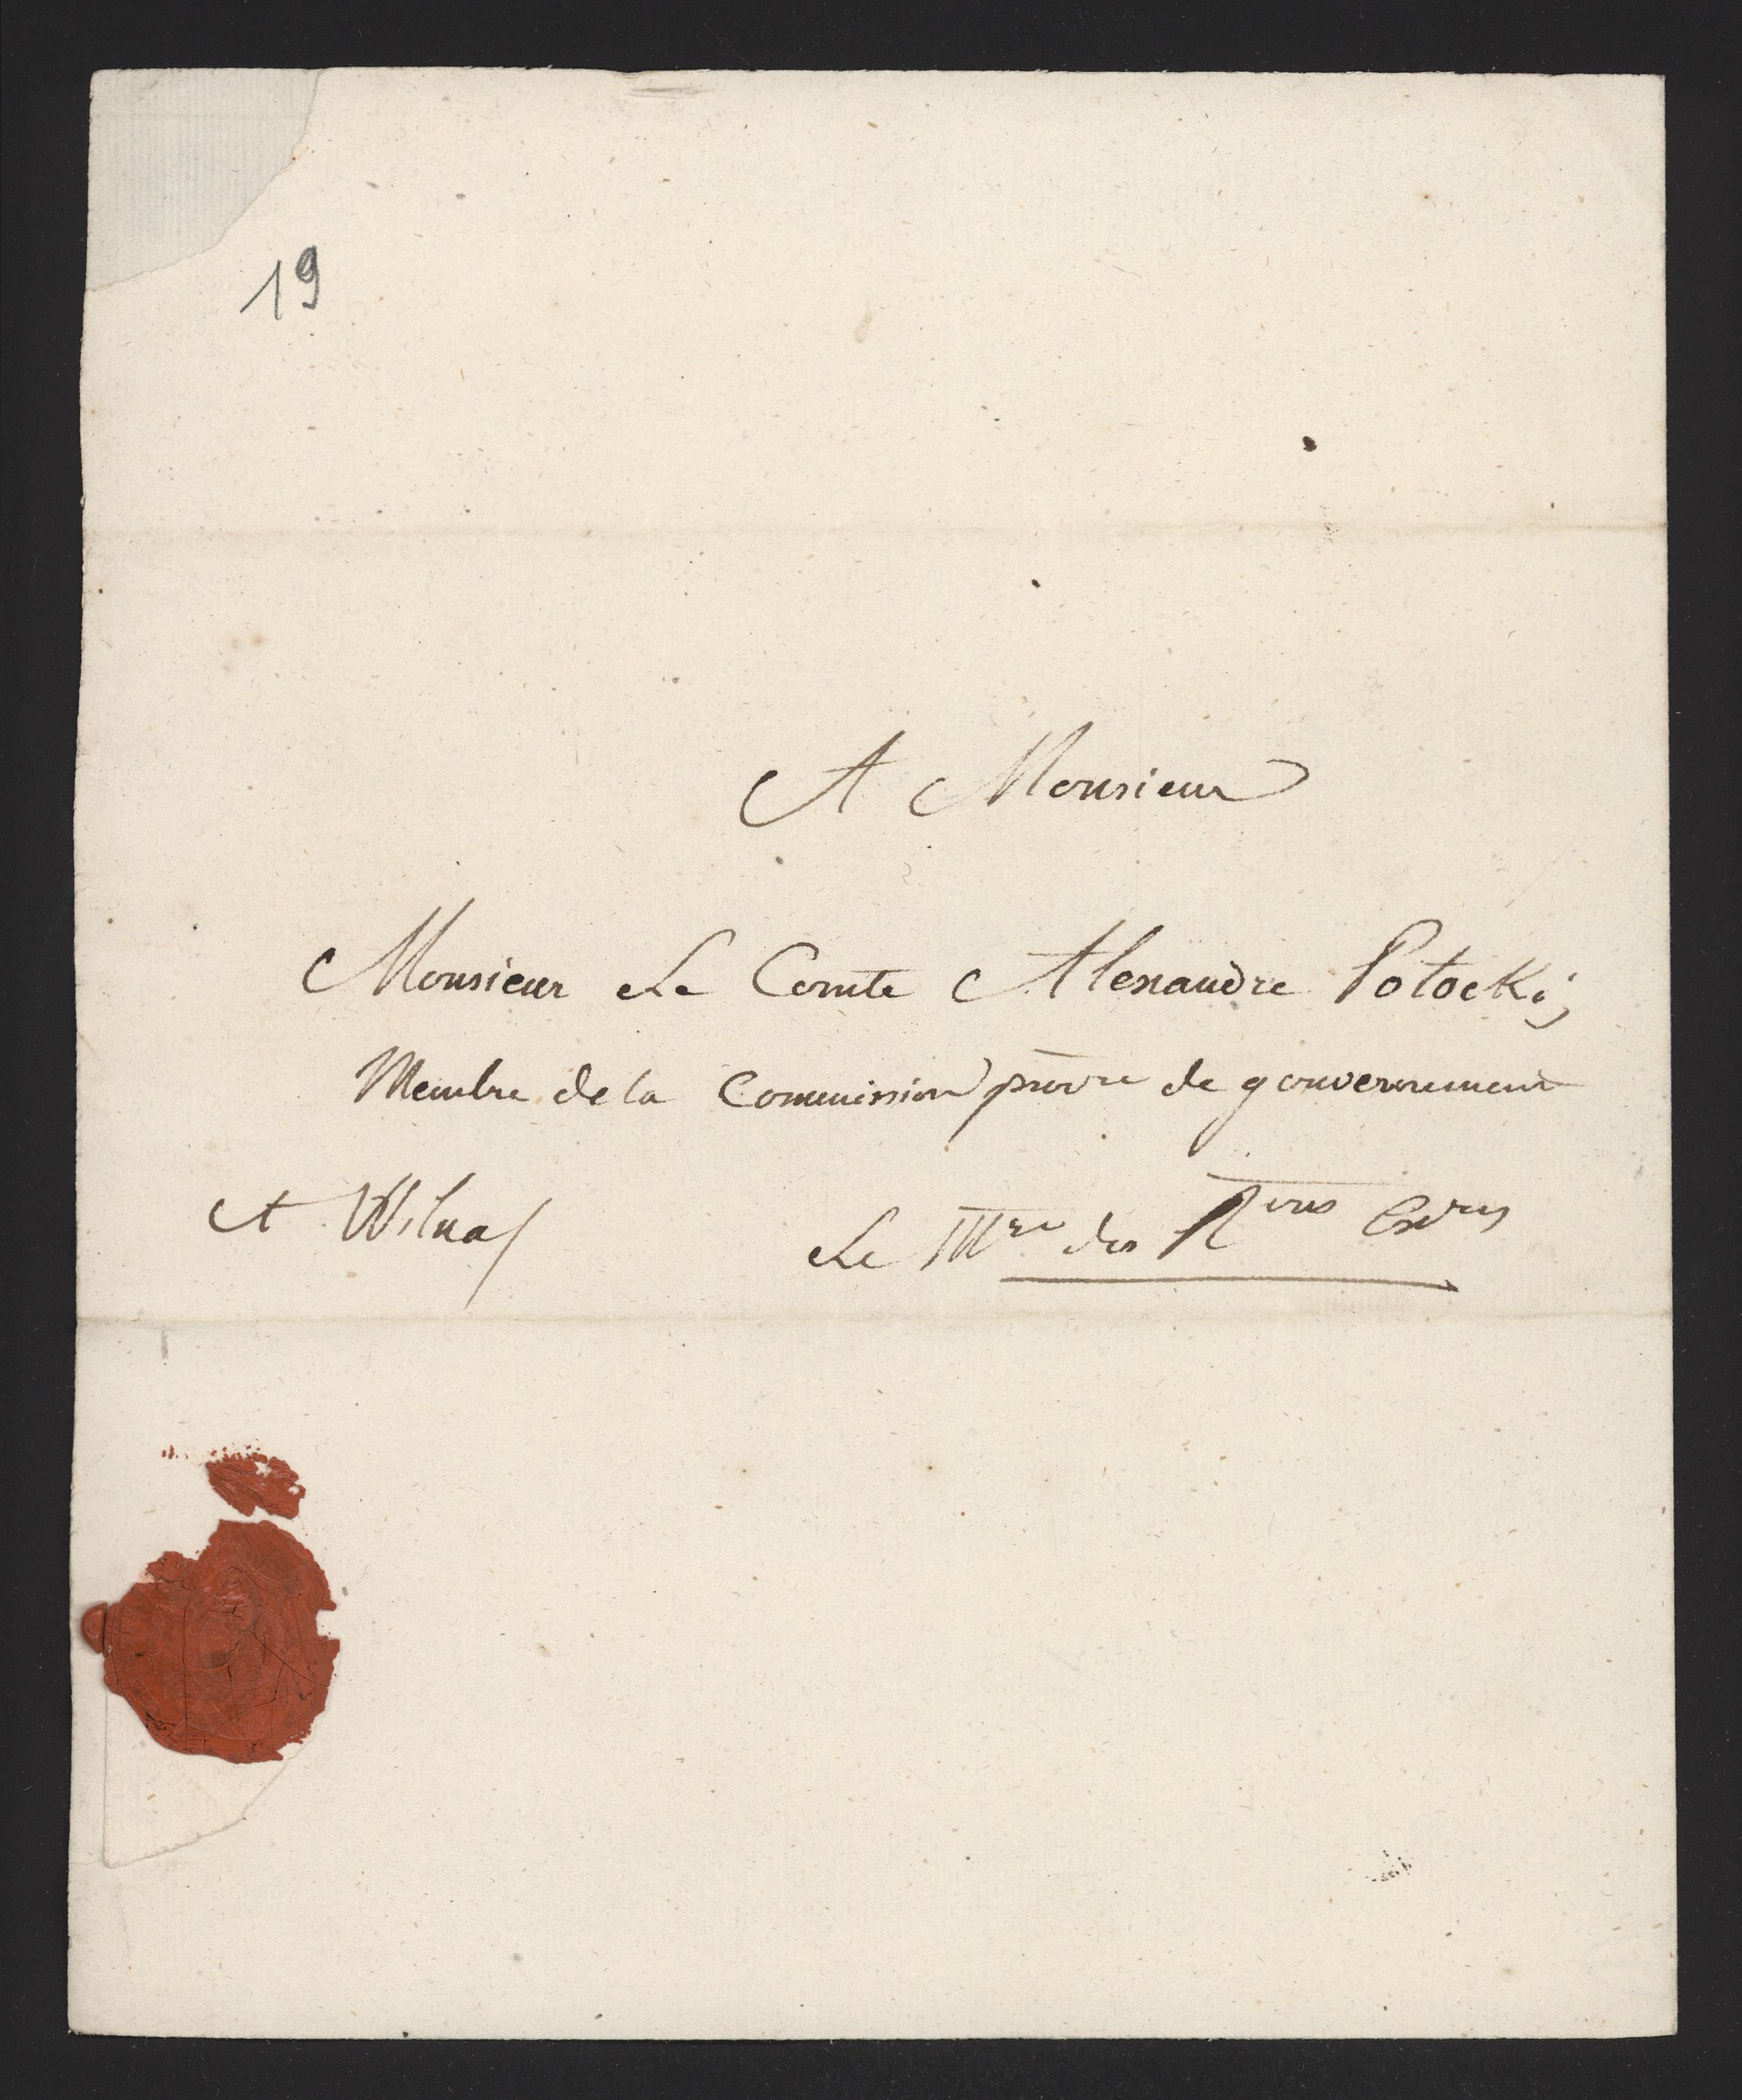 19
A Monsieur
Monsieur Le Comte Alexandre Potocki,
Membre de la Commission provre de gouvernement
A Wilna
Le Mre des Rons Exres